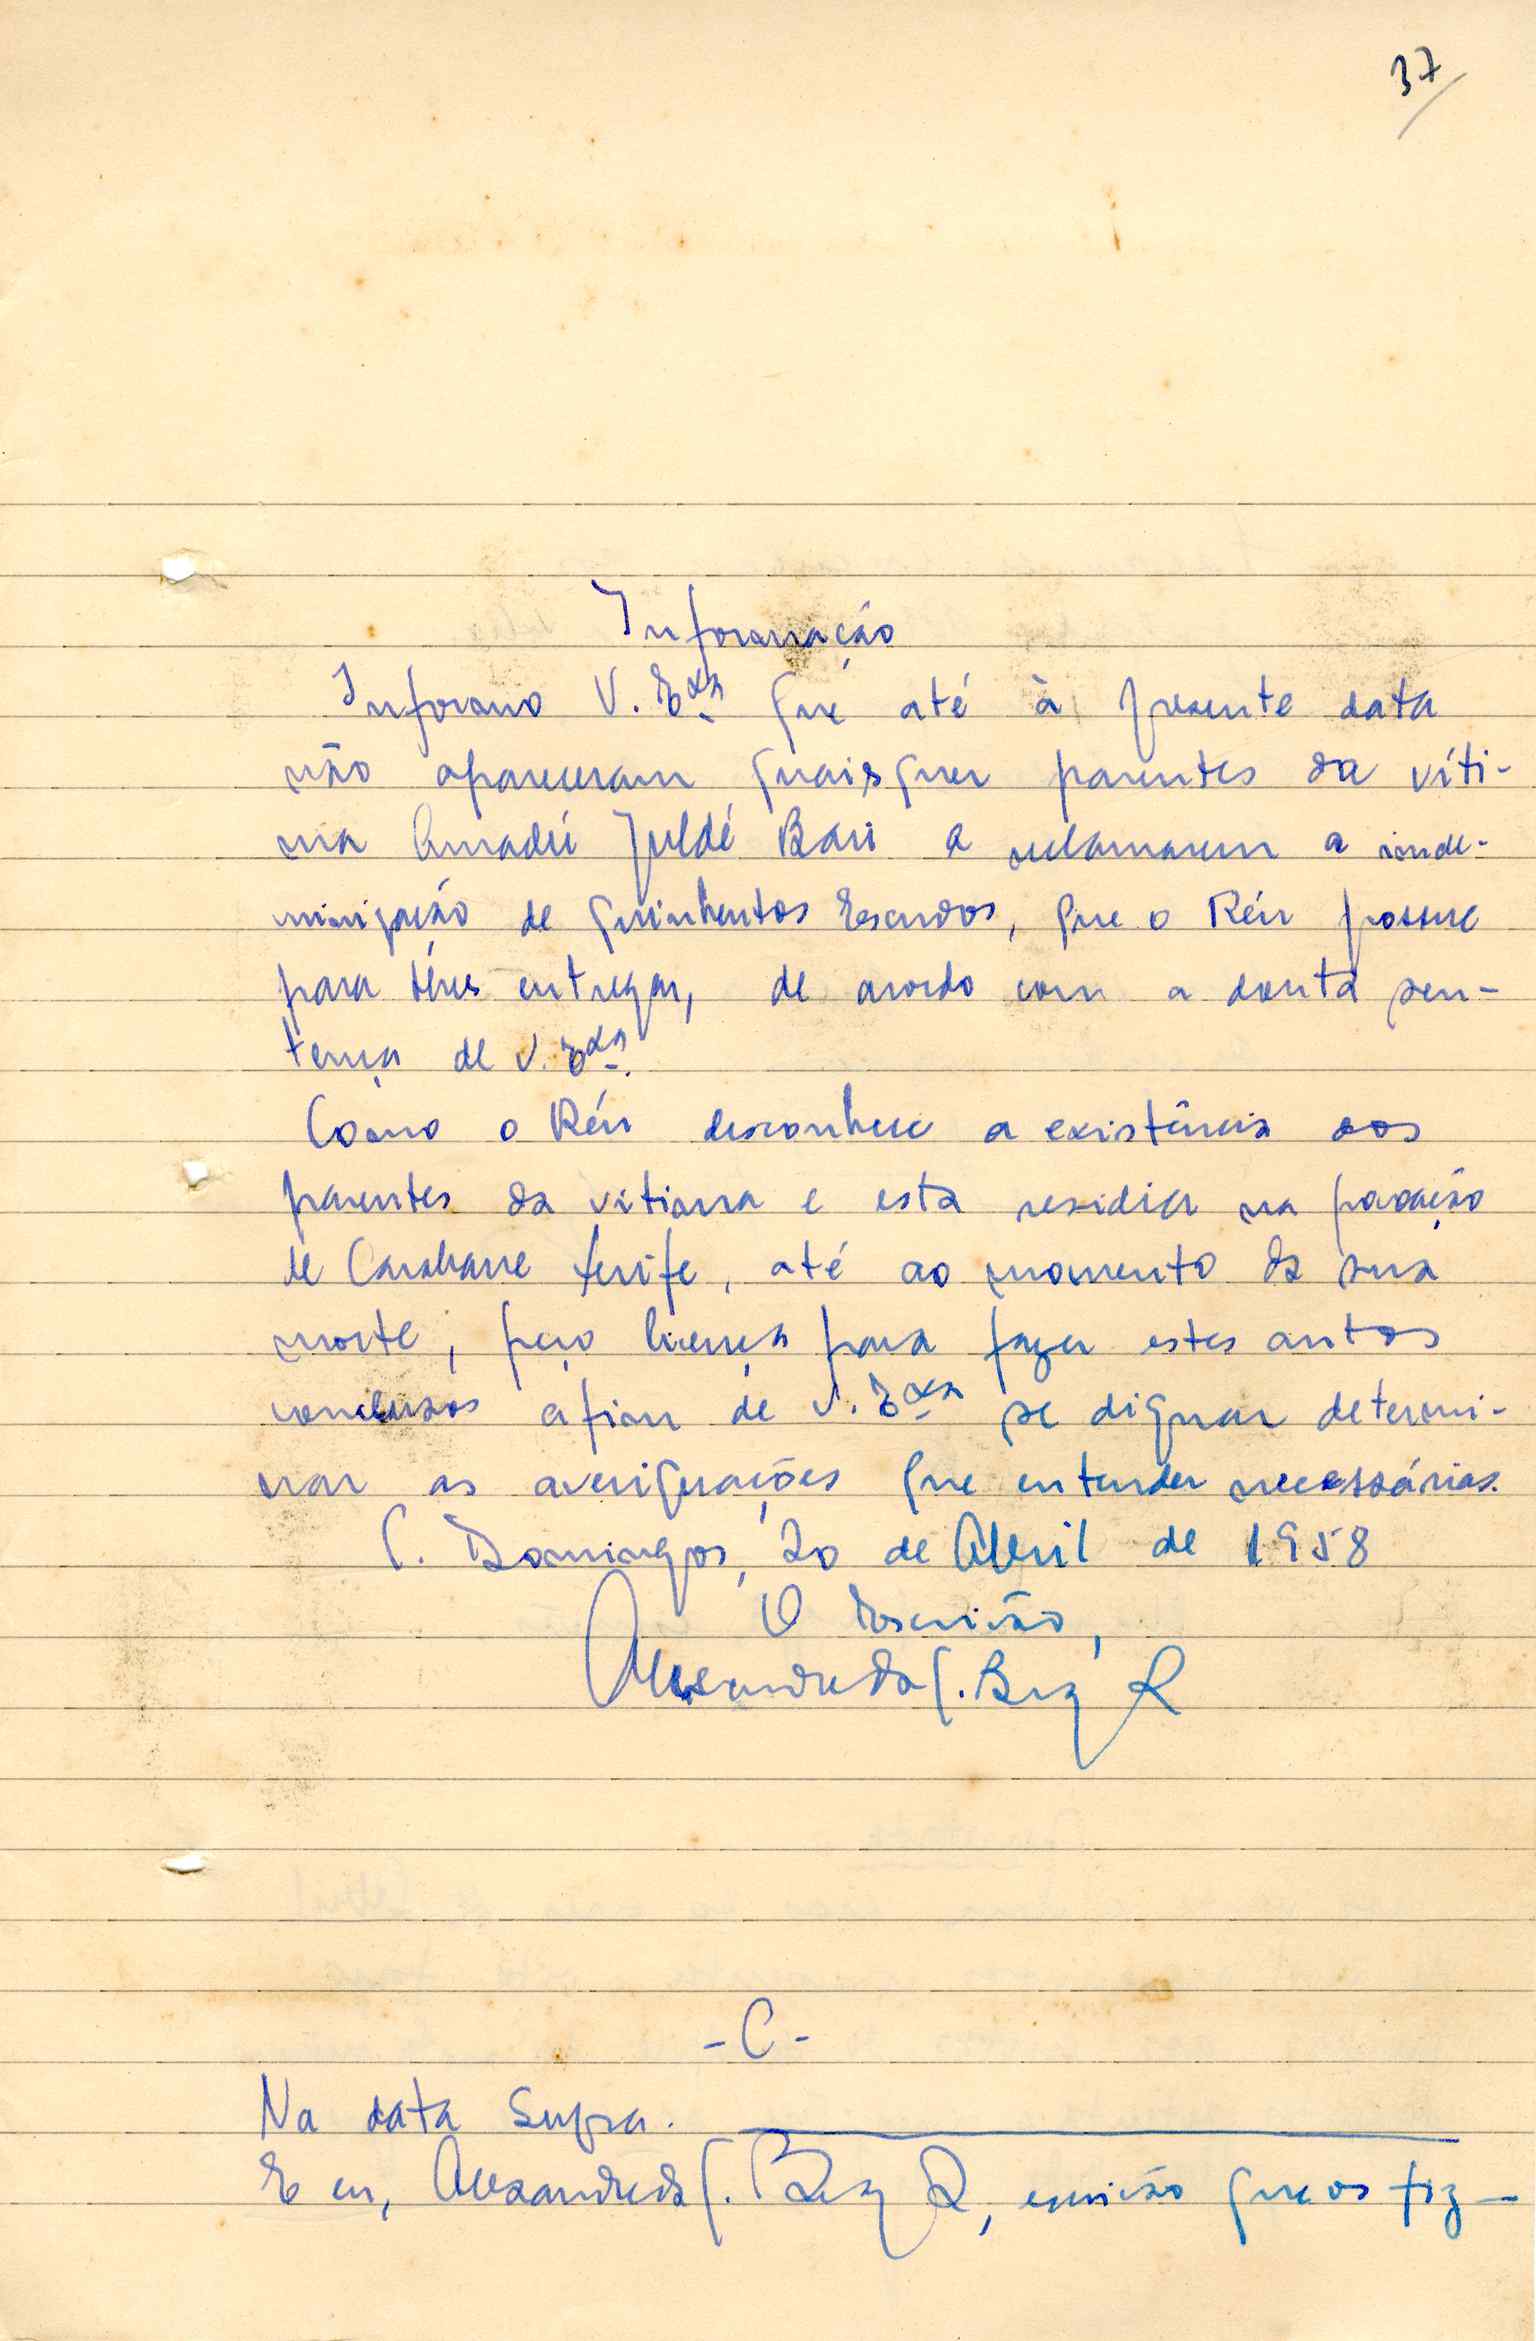 37
Informação
Informo V. Exa que até à presente data
não apareceram quaisquer parentes da víti-
ma Amadú Juldé Bari a reclamarem a inde-
minização de quinhentos Escudos, que o Réu possue
para entregar, de acordo com a douta sen-
tença de V. Exa.
Como o Réu desconhece a existência dos
parentes da vitima e esta residia na povoação
de até ao momento da sua
morte, peço licença para fazer estes autos
conclusos afim de V. Exa se dignar determi-
nar as averiguações que entender necessárias.
C. Domingos, 20 de Abril de 1958
O Escrivão,
Alexandre da C.
- C -
Na data supra.
E eu, Alexandre da C. escrivão que os fiz